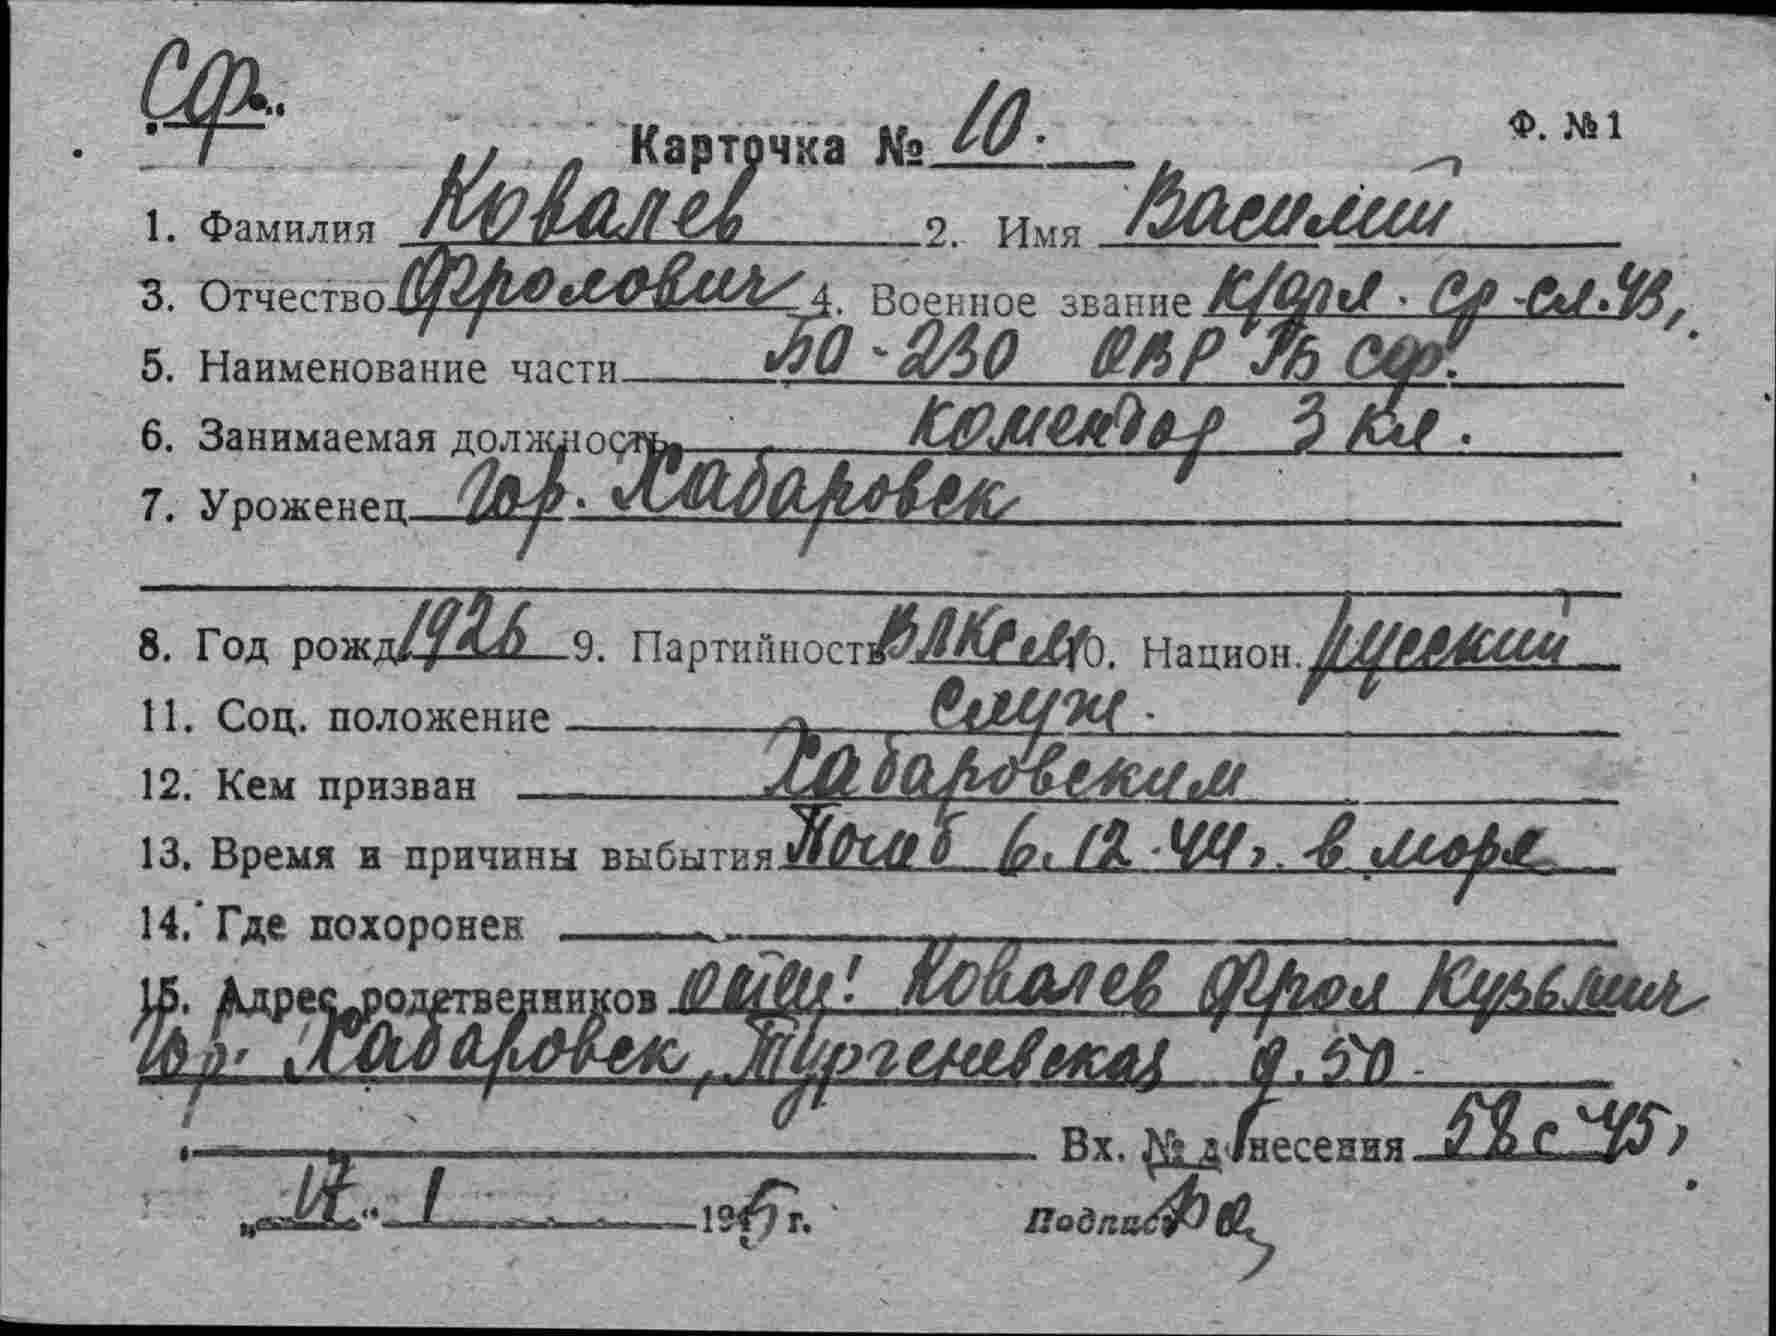 СФ.
Карточка № 10. Ф. №1
1. Фамилия Ковалев 2. Имя Василий
3. Отчество Фролович 4. Военное звание к/фл. ср. сл. 43,
5. Наименование части БО-230 ОВР ГБ СФ.
6. Занимаемая должность комендор 3 кл.
7. Уроженец гор. Хабаровск
8. Год рожд. 1926 9. Партийность ВЛКСМ 10. Национ. русский
11. Соц. положение служ.
12. Кем призван Хабаровским
13. Время и причины выбытия Погиб 6.12.44г. в море
14. Где похоронен
15. Адрес родственников отец: Ковалев Фрол Кузьмич
гор. Хабаровск, Тургеневская д. 50
Вх. № донесения 58с 45г
"17" 1 1945 г. Подпись